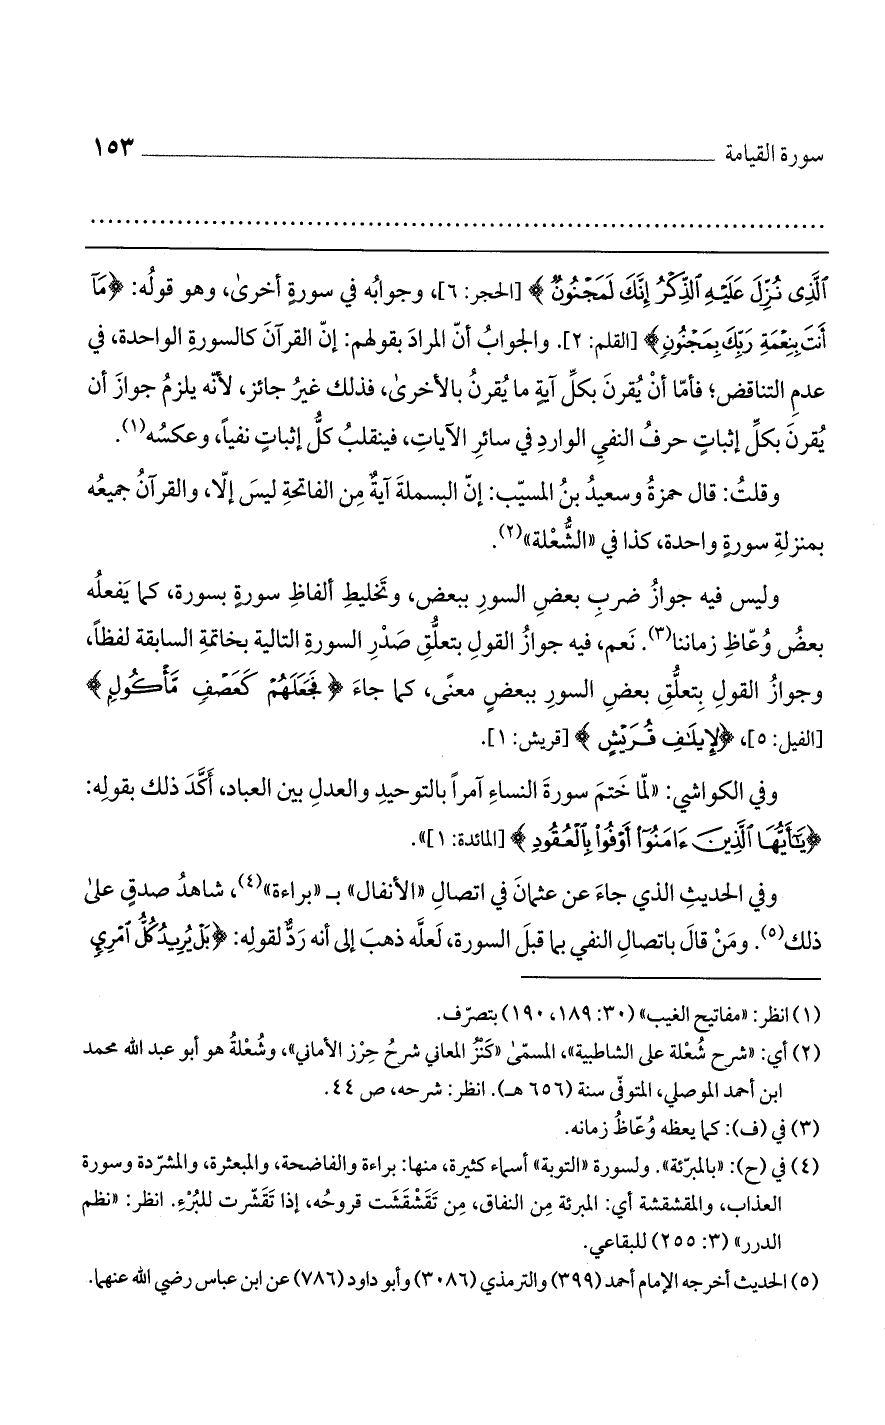 سورة القيامة ١٥٣
الَّذِى نُزِّلَ عَلَيْهِ الذِّكْرُ إِنَّكَ لَمَجْنُونٌ ﴾ [الحجر: ٦]، وجوابُه في سورةٍ أخرىٰ، وهو قولُه: ﴿ مَآ
أَنتَ بِنِعْمَةِ رَبِّكَ بِمَجْنُونٍ ﴾ [القلم: ٢]. والجوابُ أنّ المرادَ بقولهم: إنّ القرآنَ كالسورةِ الواحدة، في
عدمِ التناقض؛ فأمّا أنْ يُقرنَ بكلِّ آيةٍ ما يُقرنُ بالأخرىٰ، فذلك غيرُ جائز، لأنّه يلزمُ جوازَ أن
يُقرنَ بكلِّ إثباتٍ حرفُ النفيِ الواردِ في سائرِ الآياتِ، فينقلبُ كلُّ إثباتٍ نفياً، وعكسُه(١).
وقلتُ: قال حمزةُ وسعيدُ بنُ المسيّب: إنّ البسملةَ آيةٌ مِن الفاتحةِ ليسَ إلّا، والقرآنُ جميعُه
بمنزلةِ سورةٍ واحدة، كذا في «الشُّعْلة»(٢).
وليس فيه جوازُ ضربِ بعضِ السورِ ببعض، وتَخليطِ ألفاظِ سورةٍ بسورة، كما يَفعلُه
بعضُ وُعّاظِ زماننا(٣). نَعم، فيه جوازُ القولِ بتعلُّقِ صَدْرِ السورةِ التالية بخاتمةِ السابقة لفظاً،
وجوازُ القولِ بِتعلُّقِ بعضِ السورِ ببعضٍ معنًى، كما جاءَ ﴿ فَجَعَلَهُمْ كَعَصْفٍ مَّأْكُولٍ ﴾
[الفيل: ٥]، ﴿لِإِيلَٰفِ قُرَيْشٍ ﴾ [قريش: ١].
وفي الكواشي: «لمّا خَتمَ سورةَ النساءِ آمراً بالتوحيدِ والعدلِ بين العباد، أَكَّدَ ذلك بقولِه:
﴿يَٰٓأَيُّهَا الَّذِينَ ءَامَنُوٓا أَوْفُوا بِالْعُقُودِ ﴾ [المائدة: ١]».
وفي الحديثِ الذي جاءَ عن عثمانَ في اتصالِ «الأنفال» بـ «براءة»(٤)، شاهدُ صدقٍ علىٰ
ذلك(٥). ومَنْ قالَ باتصالِ النفيِ بما قبلَ السورة، لَعلَّه ذهبَ إلى أنه رَدٌّ لقولِه: ﴿بَلْ يُرِيدُ كُلُّ امْرِئٍ
(١) انظر: «مفاتيح الغيب» (٣٠: ١٨٩، ١٩٠) بتصرّف.
(٢) أي: «شرح شُعْلة على الشاطبية»، المسمّىٰ «كَنْزُ المعاني شرحُ حِرْز الأماني»، وشُعْلةُ هو أبو عبد الله محمد
ابن أحمد الموصلي، المتوفّى سنة (٦٥٦ هـ). انظر: شرحه، ص ٤٤.
(٣) في (ف): كما يعظه وُعّاظُ زمانه.
(٤) في (ح): «بالمبرّئة». ولسورة «التوبة» أسماء كثيرة، منها: براءة والفاضحة، والمبعثرة، والمشرّدة وسورة
العذاب، والمقشقشة أي: المبرئة مِن النفاق، مِن تَقَشْقَشَت قروحُه، إذا تَقَشّرت للبُرْءِ. انظر: «نظم
الدرر» (٣: ٢٥٥) للبقاعي.
(٥) الحديث أخرجه الإمام أحمد (٣٩٩) والترمذي (٣٠٨٦) وأبو داود (٧٨٦) عن ابن عباس رضي الله عنهما.